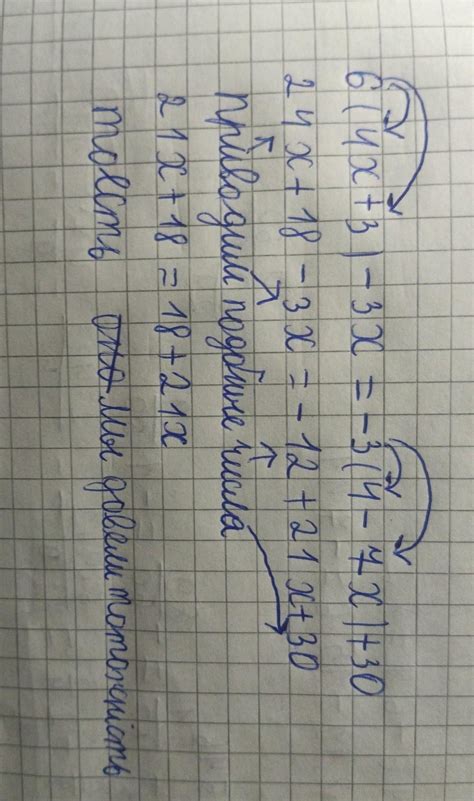 6(4x+3)-3x=-3(4-7x)+30
24x+18-3x=-12+21x+30
приводим подобные числа
21x+18=18+21x
товсть мы довели тотожність